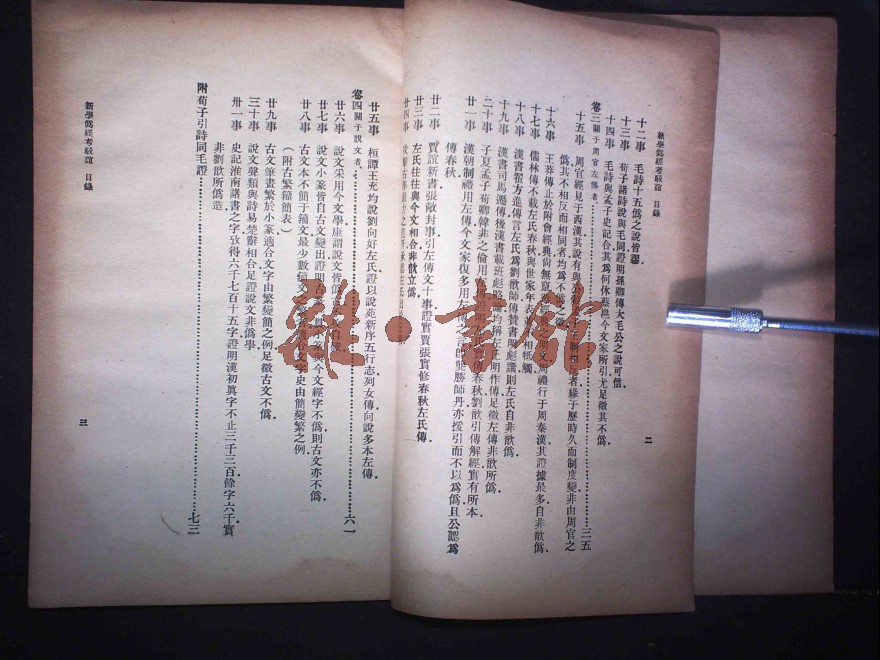 新學僞經考駁誼 目錄
十二事 毛詩十五僞之說皆謬.
十三事 荀子諸詩說與毛同證明孫卿傳大毛公之說可信.
十四事 毛詩與孟子史記合其爲何休蔡邕今文家所引尤足徵其不僞.
卷三關于周官左傳者……三五
十五事 周官經見于西漢其說有與 者緣于歷時久而制度變非由周官之
僞其不相反而相同者均爲不僞之
十六事 王莽傳止於附會經典尚無 周禮行于周秦漢其證據最多自非歆僞.
十七事 儒林傳不載左氏春秋與世家年表 相牴觸.
十八事 漢書翟方進傳言左氏爲劉歆師傳贊 彪讚則左氏自非歆僞.
十九事 漢書司馬遷傳後漢書載班彪 論均稱左丘明作傳足徵左傳非歆所僞.
二十事 子夏孟子荀卿韓非之倫用 春秋劉歆引傳解經實有所本
廿一事 漢朝制禮用左傳今文家復多用 之言師 龔勝師丹亦援引而不以爲僞且公認爲
傳春秋.
廿二事 賈誼新書張敞封事引左傳文十事證實賈張實修春秋左氏傳.
廿三事 左氏往往與今文相合非歆立僞.
廿四事
二
廿五事 桓譚王充均說劉向好左氏證以說苑新序五行志列女傳向說多本左傳.
卷四關于說文者……六一
廿六事 說文采用今文學康謂說文皆僞
廿七事 說文小篆皆自古文變出證明古 與今文經字不僞則古文亦不僞.
廿八事 古文本不簡于籀文最少數籀文之 適合文字史由簡變繁之例.
（附古繁籀簡表）
廿九事 古文筆畫繁於小篆適合文字由繁變簡之例足徵古文不僞.
三十事 說文聲類與詩易楚辭相合足證說文非僞學
卅一事 史記淮南諸書之字攷得六千七百十五字證明漢初眞字不止三千三百餘字六千實
非劉歆所僞造
附荀子引詩同毛證……七三
新學僞經考駁誼 目錄
三
雜·書館